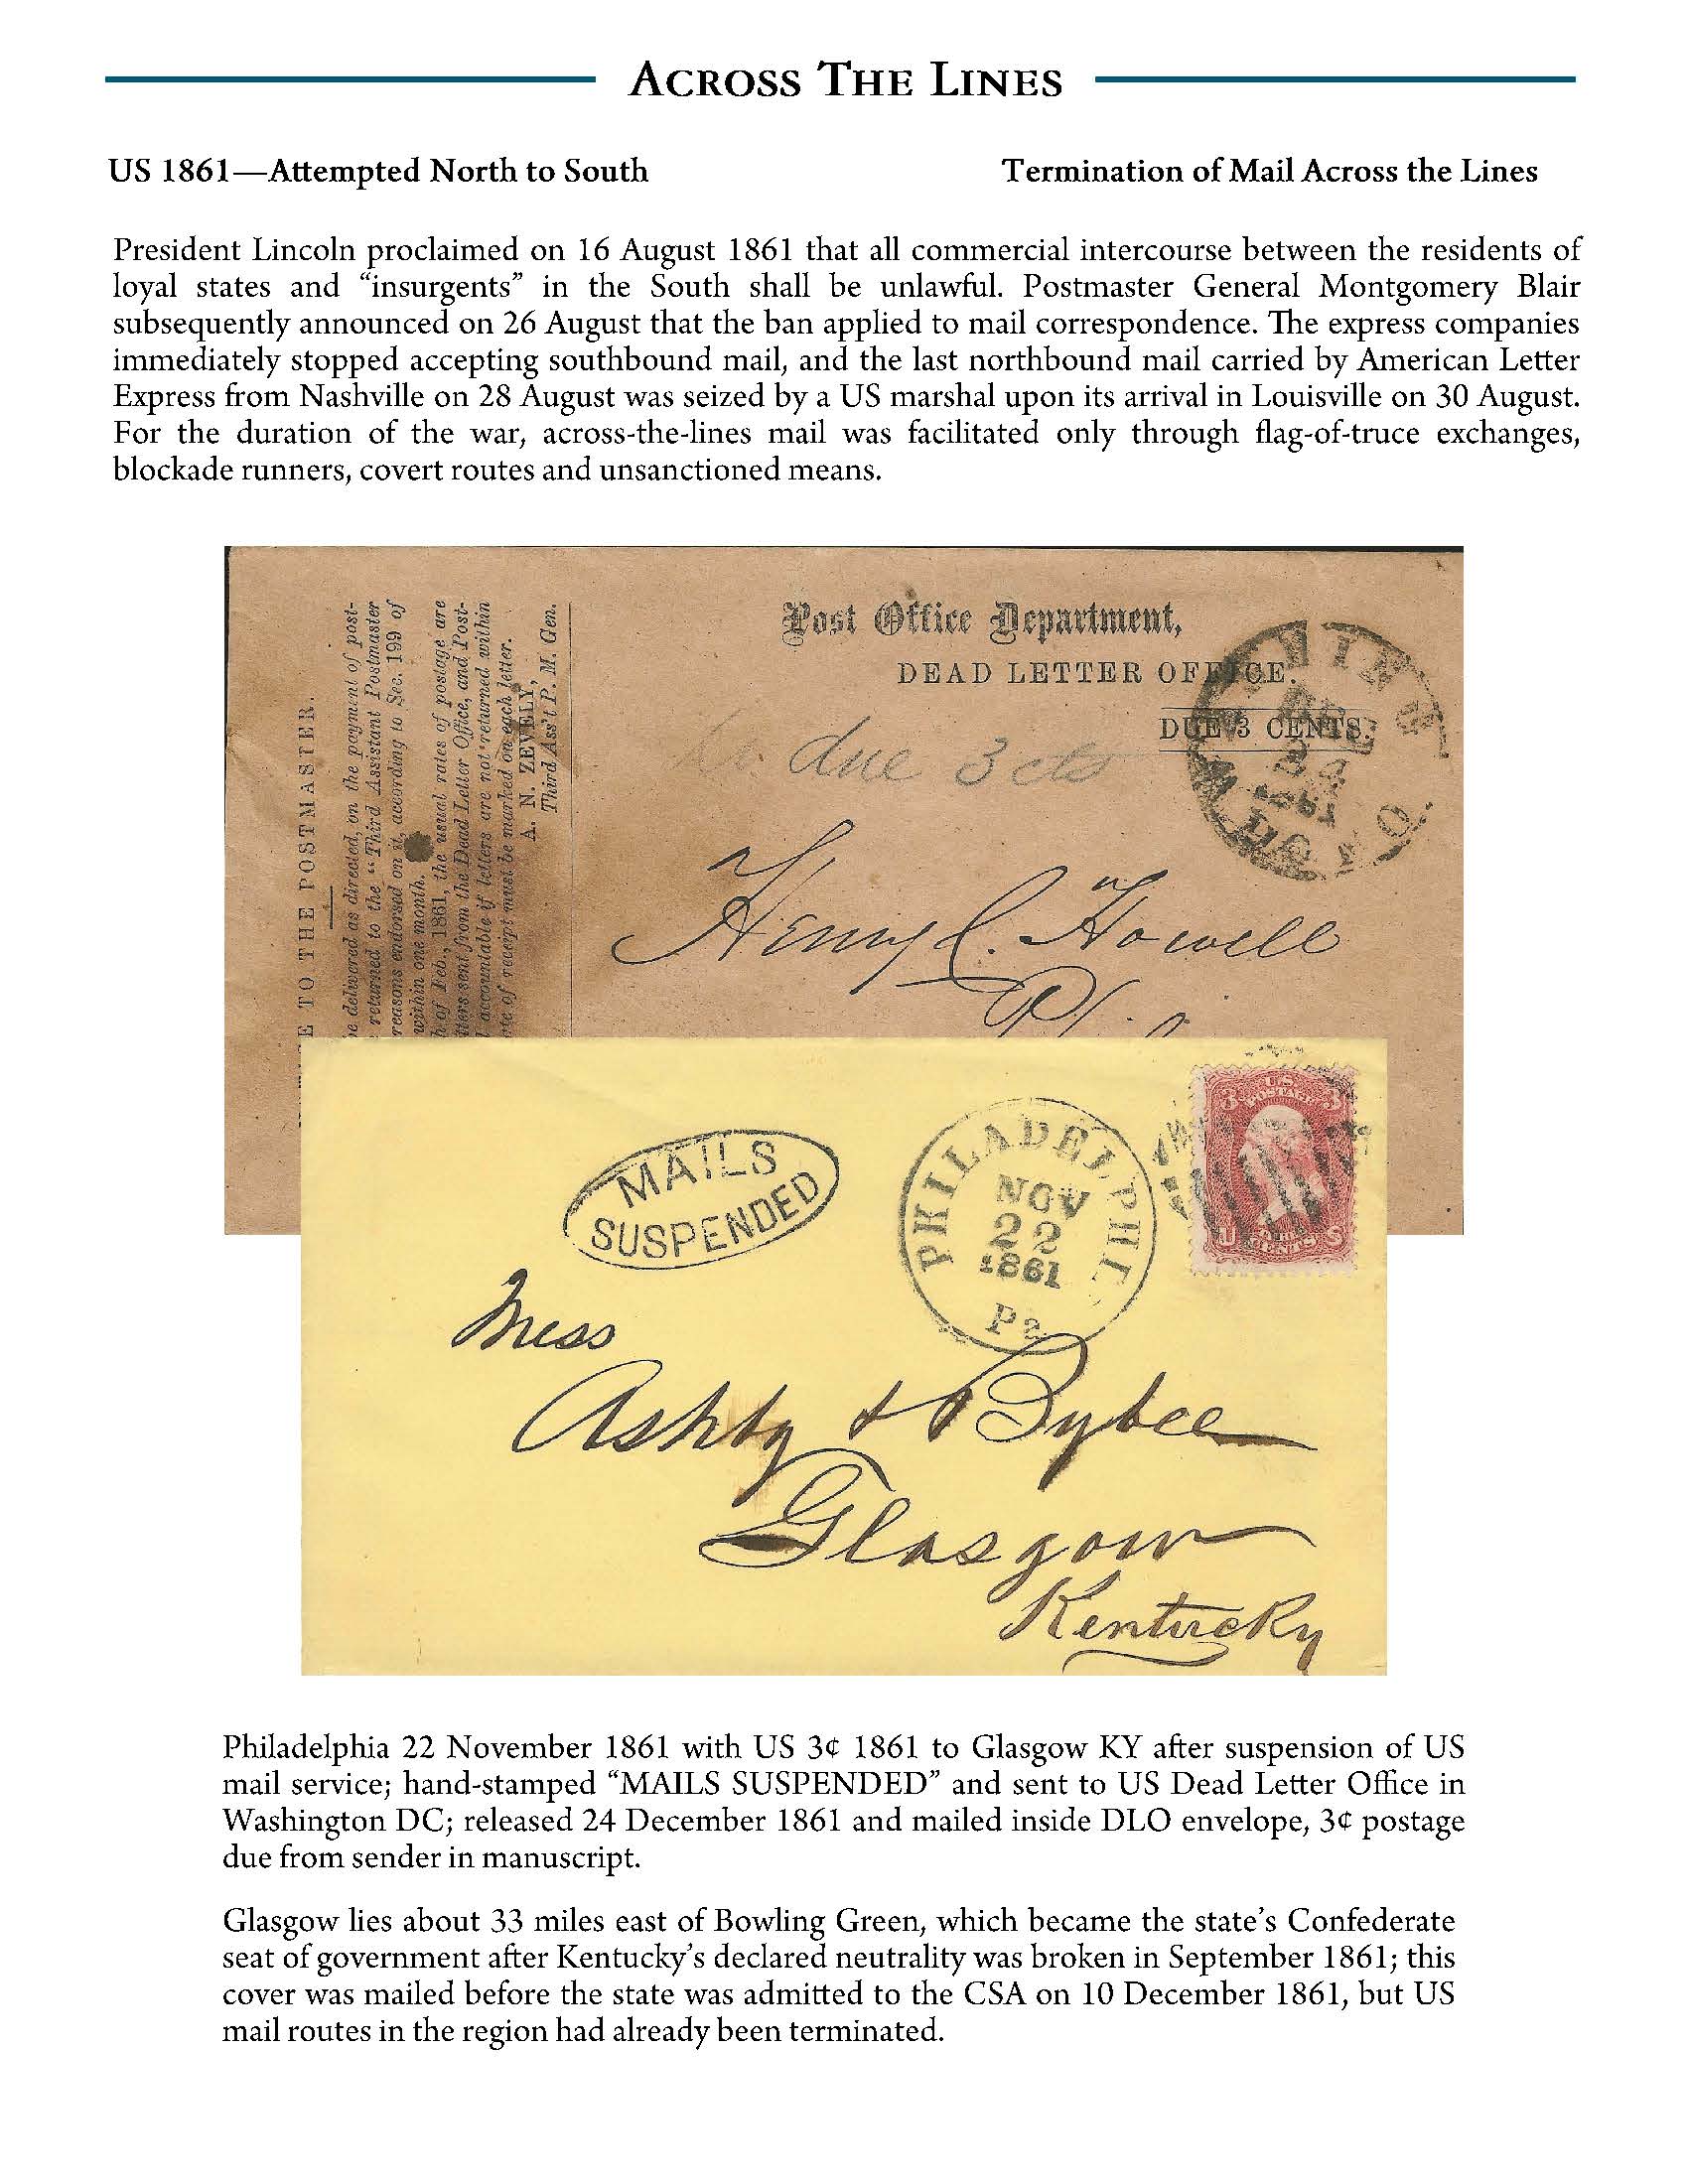 ACROSS THE LINES
US 1861—Attempted North to South
Termination of Mail Across the Lines
President Lincoln proclaimed on 16 August 1861 that all commercial intercourse between the residents of
loyal states and “insurgents” in the South shall be unlawful. Postmaster General Montgomery Blair
subsequently announced on 26 August that the ban applied to mail correspondence. The express companies
immediately stopped accepting southbound mail, and the last northbound mail carried by American Letter
Express from Nashville on 28 August was seized by a US marshal upon its arrival in Louisville on 30 August.
For the duration of the war, across-the-lines mail was facilitated only through flag-of-truce exchanges,
blockade runners, covert routes and unsanctioned means.
TO THE POSTMASTER.
delivered as directed, on the payment of post-
returned to the “Third Assistant Postmaster
reasons endorsed on it, according to Sec. 199 of
within one month.
of Feb., 1861, the usual rates of postage are
sent from the Dead Letter Office, and Post-
accountable if letters are not returned within
of receipt must be marked on each letter.
A. N. ZEVELY,
Third Ass't P. M. Gen.
Post Office Department,
DEAD LETTER OFFICE.
DUE 3 CENTS.
due 3 cts
24
1861
Henry C. Howell
MAILS
SUSPENDED
PHILADELPHI
NOV
22
1861
Pa
US
POSTAGE
3 3
U S
CENTS
Mess
Ashby & Bybee
Glasgow
Kentucky
Philadelphia 22 November 1861 with US 3¢ 1861 to Glasgow KY after suspension of US
mail service; hand-stamped “MAILS SUSPENDED” and sent to US Dead Letter Office in
Washington DC; released 24 December 1861 and mailed inside DLO envelope, 3¢ postage
due from sender in manuscript.
Glasgow lies about 33 miles east of Bowling Green, which became the state’s Confederate
seat of government after Kentucky’s declared neutrality was broken in September 1861; this
cover was mailed before the state was admitted to the CSA on 10 December 1861, but US
mail routes in the region had already been terminated.